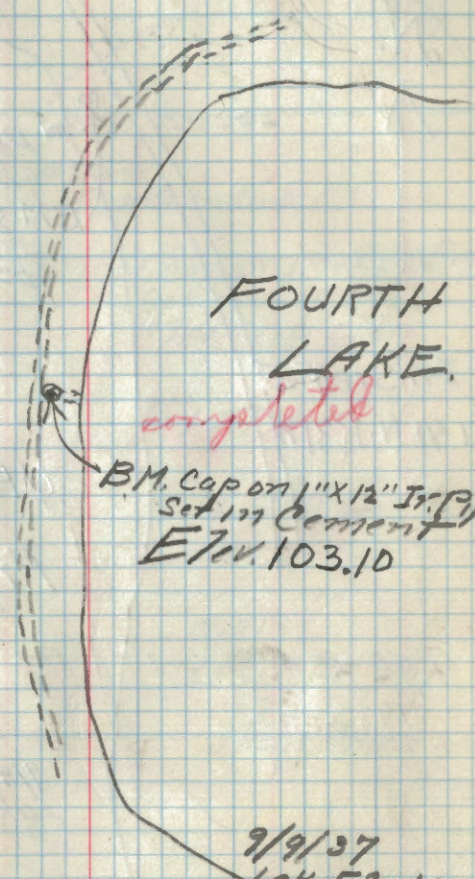 FOURTH
LAKE.
completed
B.M. Cap on 1"X12" Ir. P
Set in Cement
Elev. 103.10
9/9/37